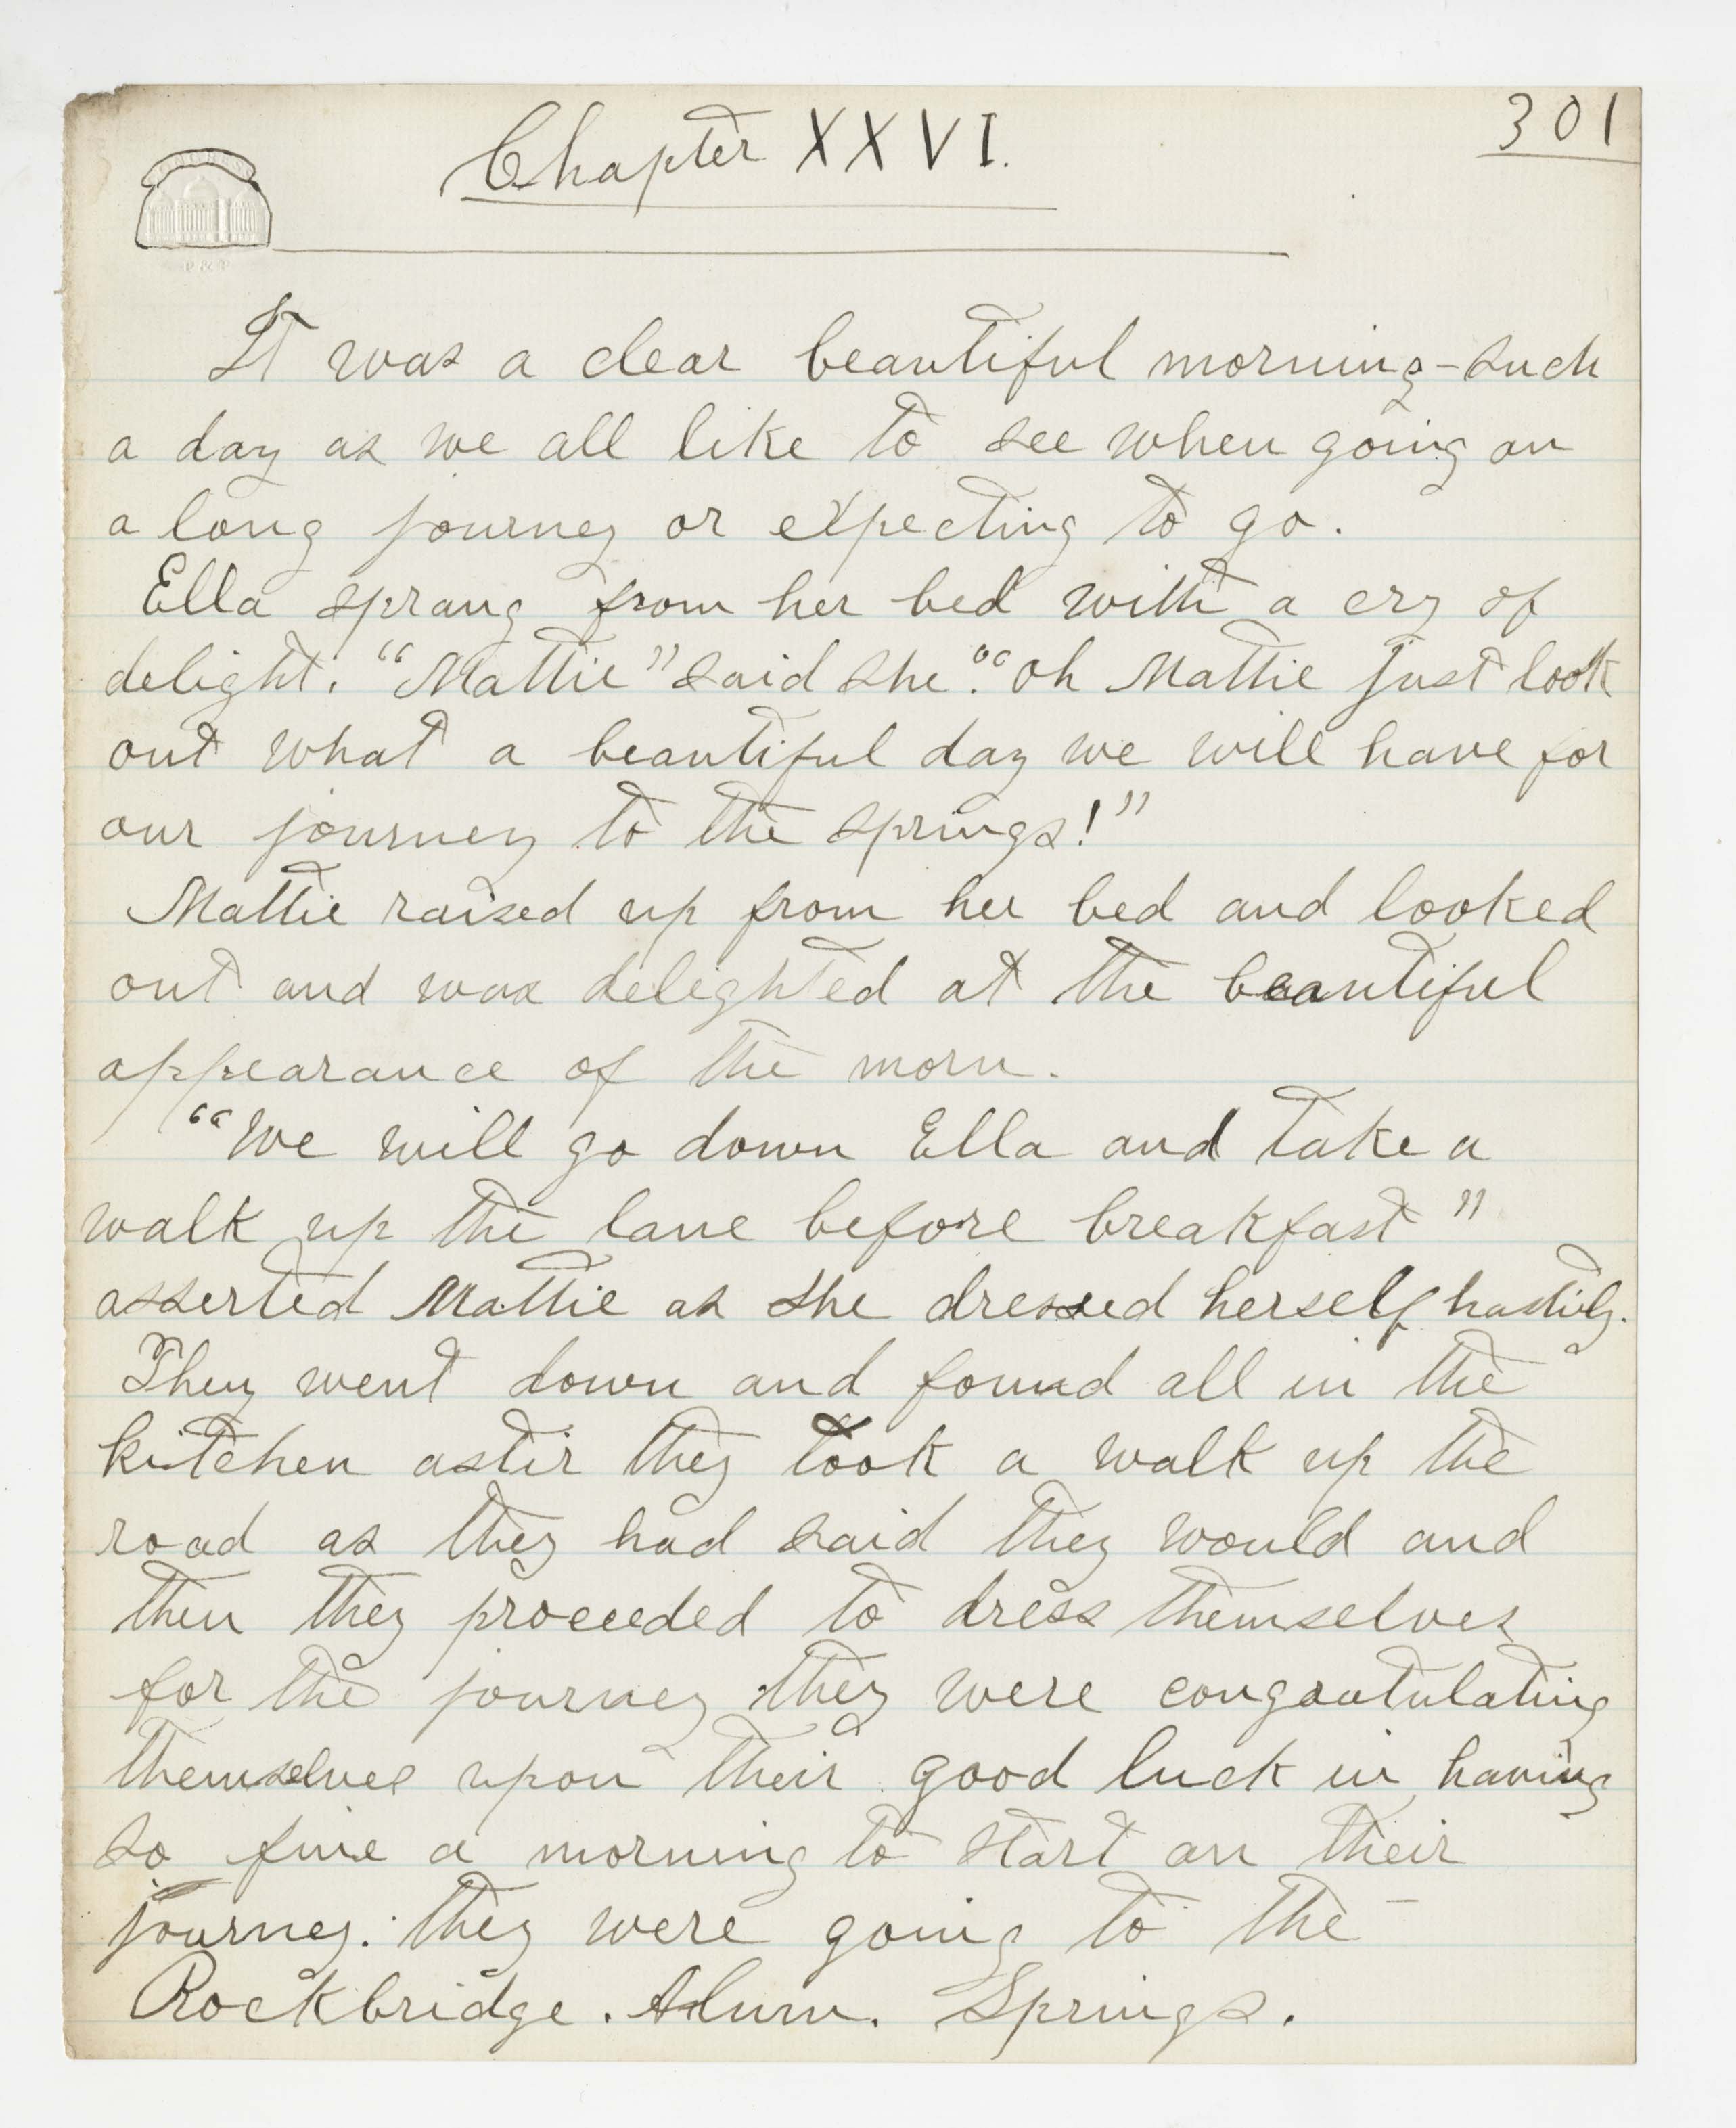 301
Chapter XXVI.
CONGRESS
P & P
It was a clear beautiful morning - such
a day as we all like to see when going on
a long journey or expecting to go.
Ella sprang from her bed with a cry of
delight. "Mattie" said she. "oh Mattie just look
out what a beautiful day we will have for
our journey to the springs!"
Mattie raised up from her bed and looked
out and was delighted at the beautiful
appearance of the morn.
"We will go down Ella and take a
walk up the lane before breakfast"
asserted Mattie as she dressed herself hastily.
They went down and found all in the
kitchen astir they took a walk up the
road as they had said they would and
then they proceeded to dress themselves
for the journey they were congratulating
themselves upon their good luck in having
so fine a morning to start on their
journey. they were going to the
Rockbridge. Alum. Springs.